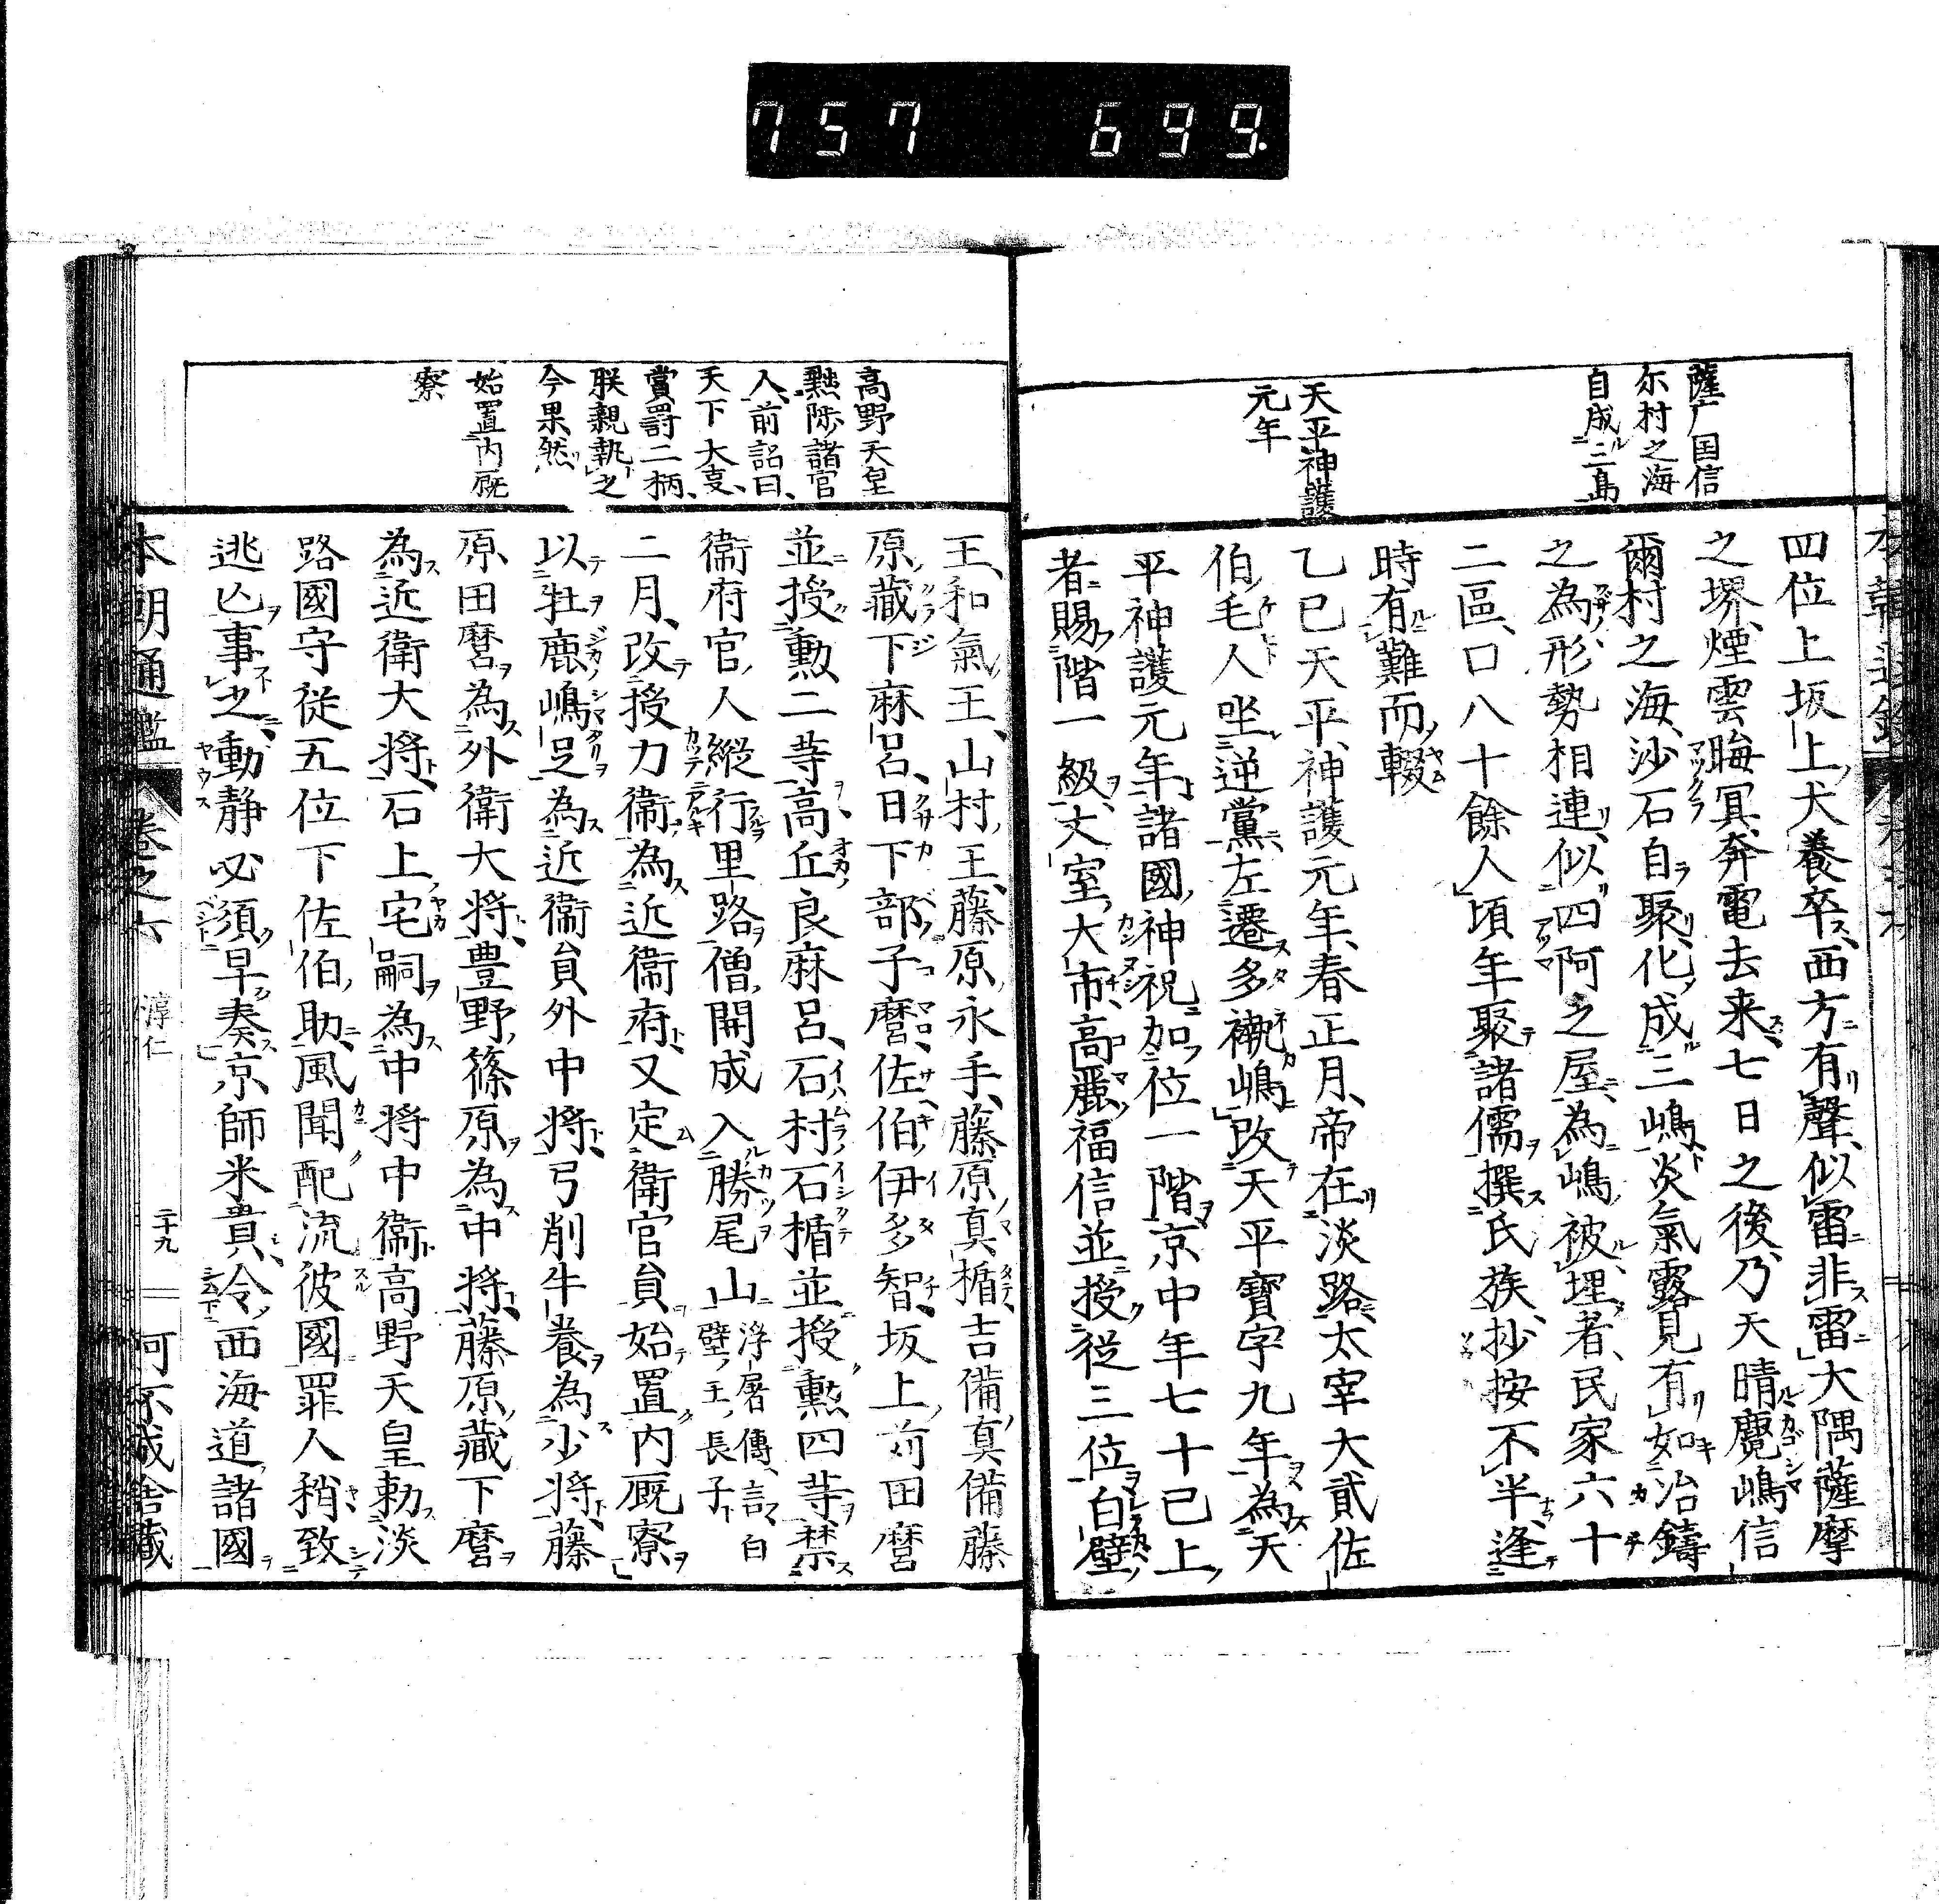 757 699.
薩广国信
尓村之海
自成三島
天平神護
元年
四位上坂上犬養卒西方有聲似雷非雷大隅薩摩
之堺煙雲晦冥奔電去来七日之後乃天晴麑嶋信
爾村之海沙石自聚化成三嶋炎氣露見有如冶鑄
之為形勢相連似四阿之屋為嶋被埋者民家六十
二區口八十餘人頃年聚諸儒撰氏族抄按不半逢
時有難而輟
乙巳天平神護元年春正月帝在淡路太宰大貳佐
伯毛人坐逆黨左遷多褹嶋改天平寶字九年為天
平神護元年諸國神祝加位一階京中年七十已上
者賜階一級丈室大市高麗福信並授從三位白壁
高野天皇
黜陟諸官
人前詔曰
天下大事
賞罸二柄
朕親執之
今果然
始置内厩
寮
王和氣王山村王藤原永手藤原真楯吉備真備藤
原藏下麻呂日下部子麿佐伯伊多智坂上苅田麿
並授勳二等高丘良麻呂石村石楯並授勲四等禁
衞府官人縱行里路僧開成入勝尾山浮屠傳言白
壁王長子
二月改授力衞為近衞府又定衛官員始置内厩寮
以牡鹿嶋足為近衞員外中将弓削牛養為少将藤
原田麿為外衛大将豊野篠原為中将藤原藏下麿
為近衛大将石上宅嗣為中将中衞高野天皇勅淡
路國守從五位下佐伯助風聞配流彼國罪人稍致
逃亾事之動静必須早奏京師米貴令西海道諸國
本朝通鑑 卷之六 淳仁 二十九 可不成舎藏